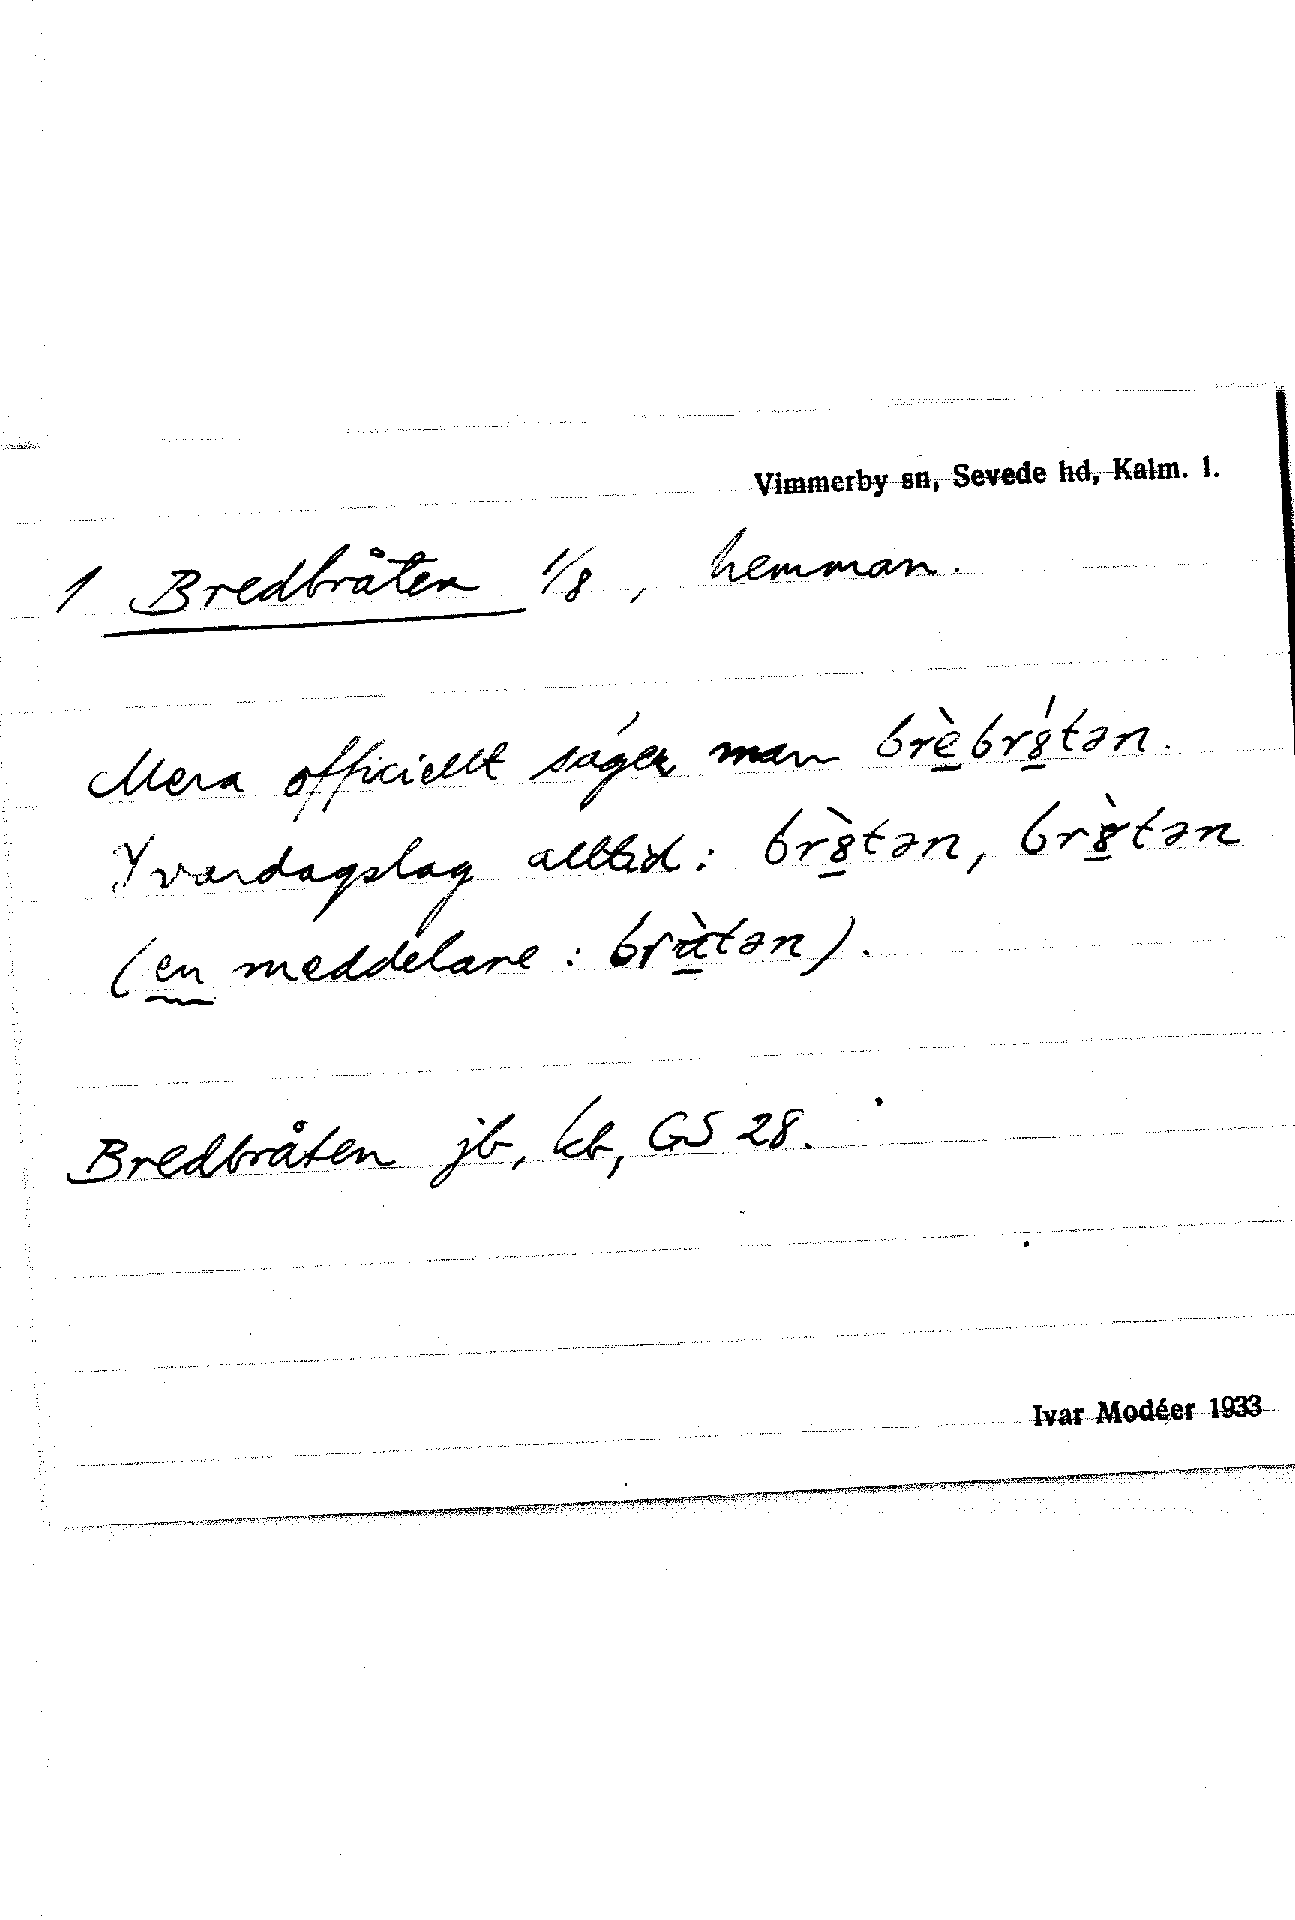 Vimmerby sn, Sevede hd, Kalm. l.
1 Bredbråten 1/8, hemman.
Mera officiellt säger man brèbr8́tən.
I vardagslag alltid: br8̀tən, br8̀tən
(en meddelare: bràtən).
Bredbråten jb, kb, GS 28.
Ivar Modéer 1933